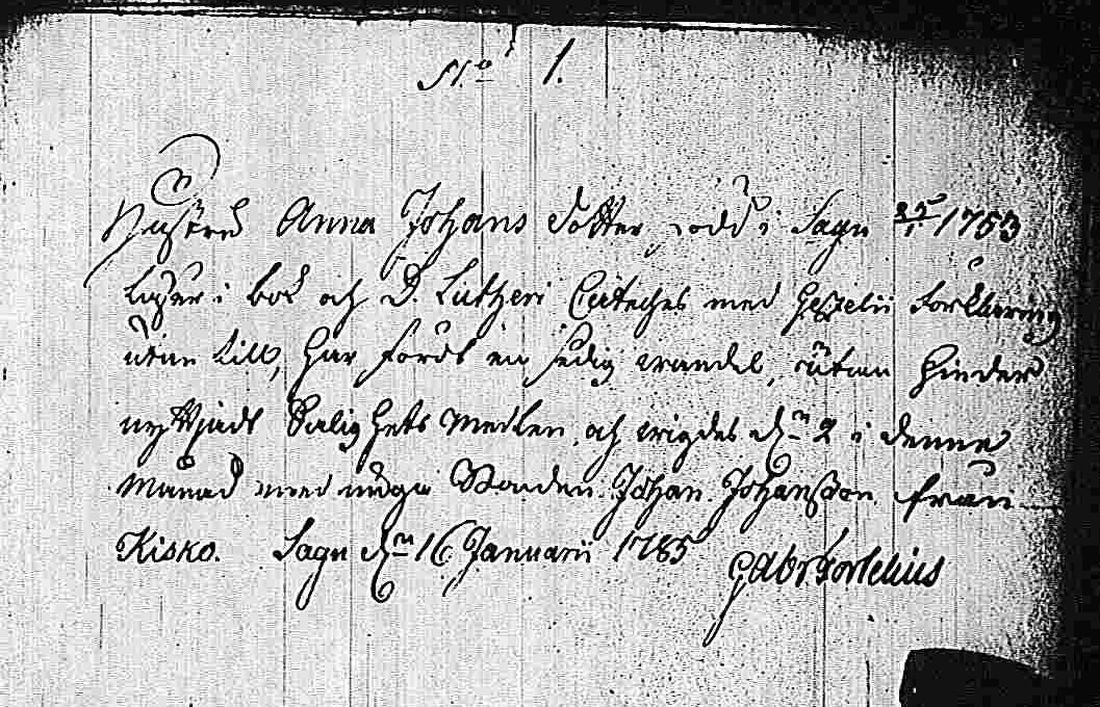 N.o 1.
Hustru Anna Johans dotter, född i Sagu 25/1 1753
läser i bok och D. Lutheri Cateches med Gezelii förklaring
utan till, har fördt en sedig wandel, utan hinder
nyttjadt Salighets Medlen, och wigdes d.n 2 i denne
Månad med unga Bonden Johan Johansson från
Kisko. Sagu d.n 16 Januarii 1785 Gabr Fortelius